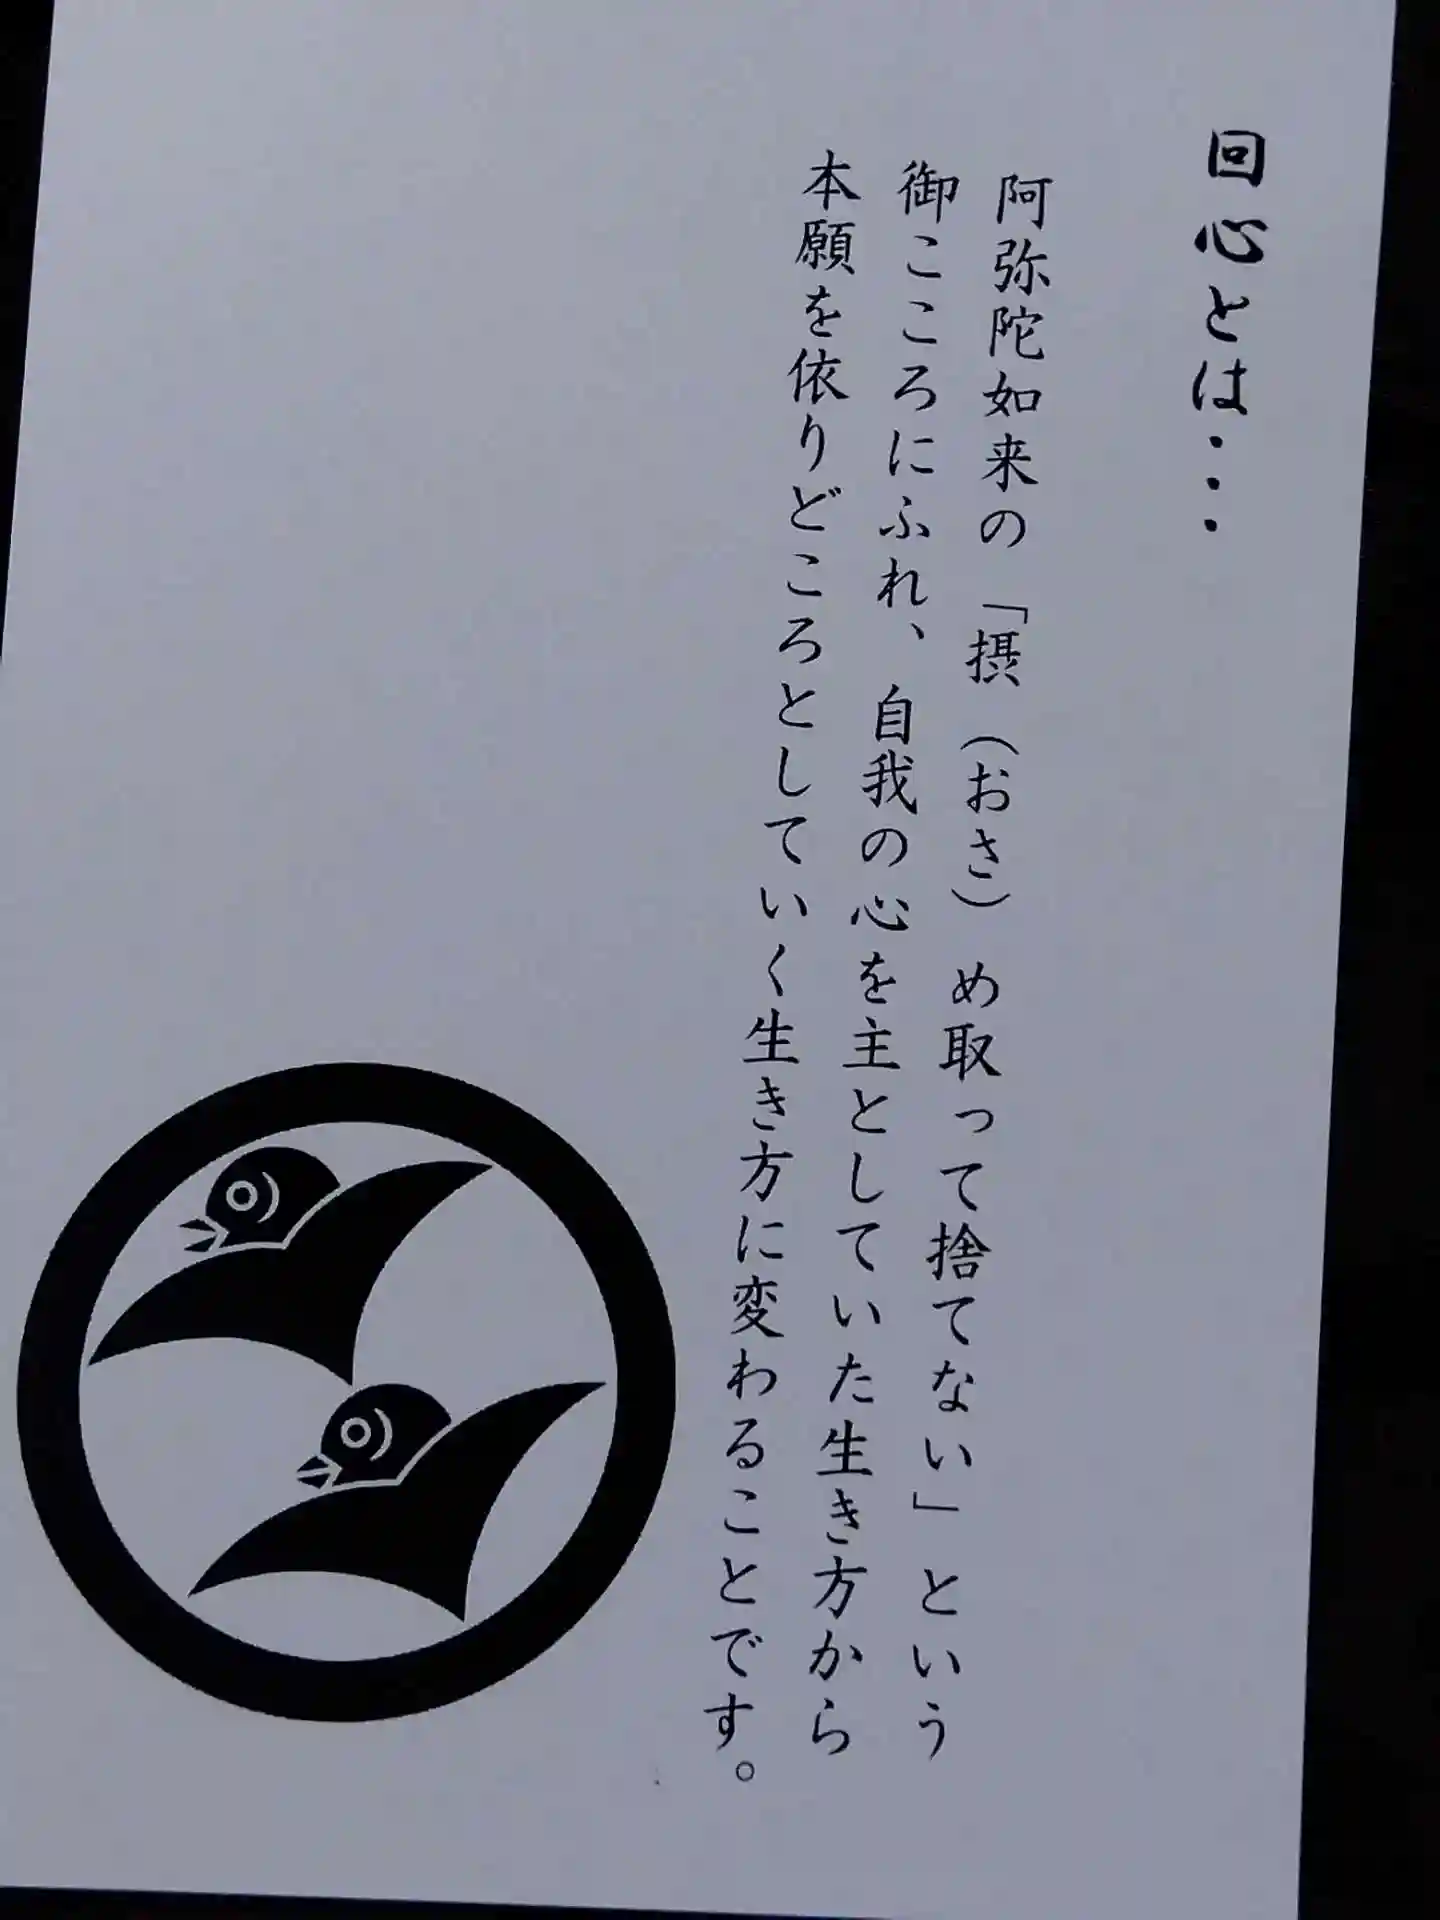 回心とは・・・
阿弥陀如来の「摂（おさ）め取って捨てない」という
御こころにふれ、自我の心を主としていた生き方から
本願を依りどころとしていく生き方に変わることです。